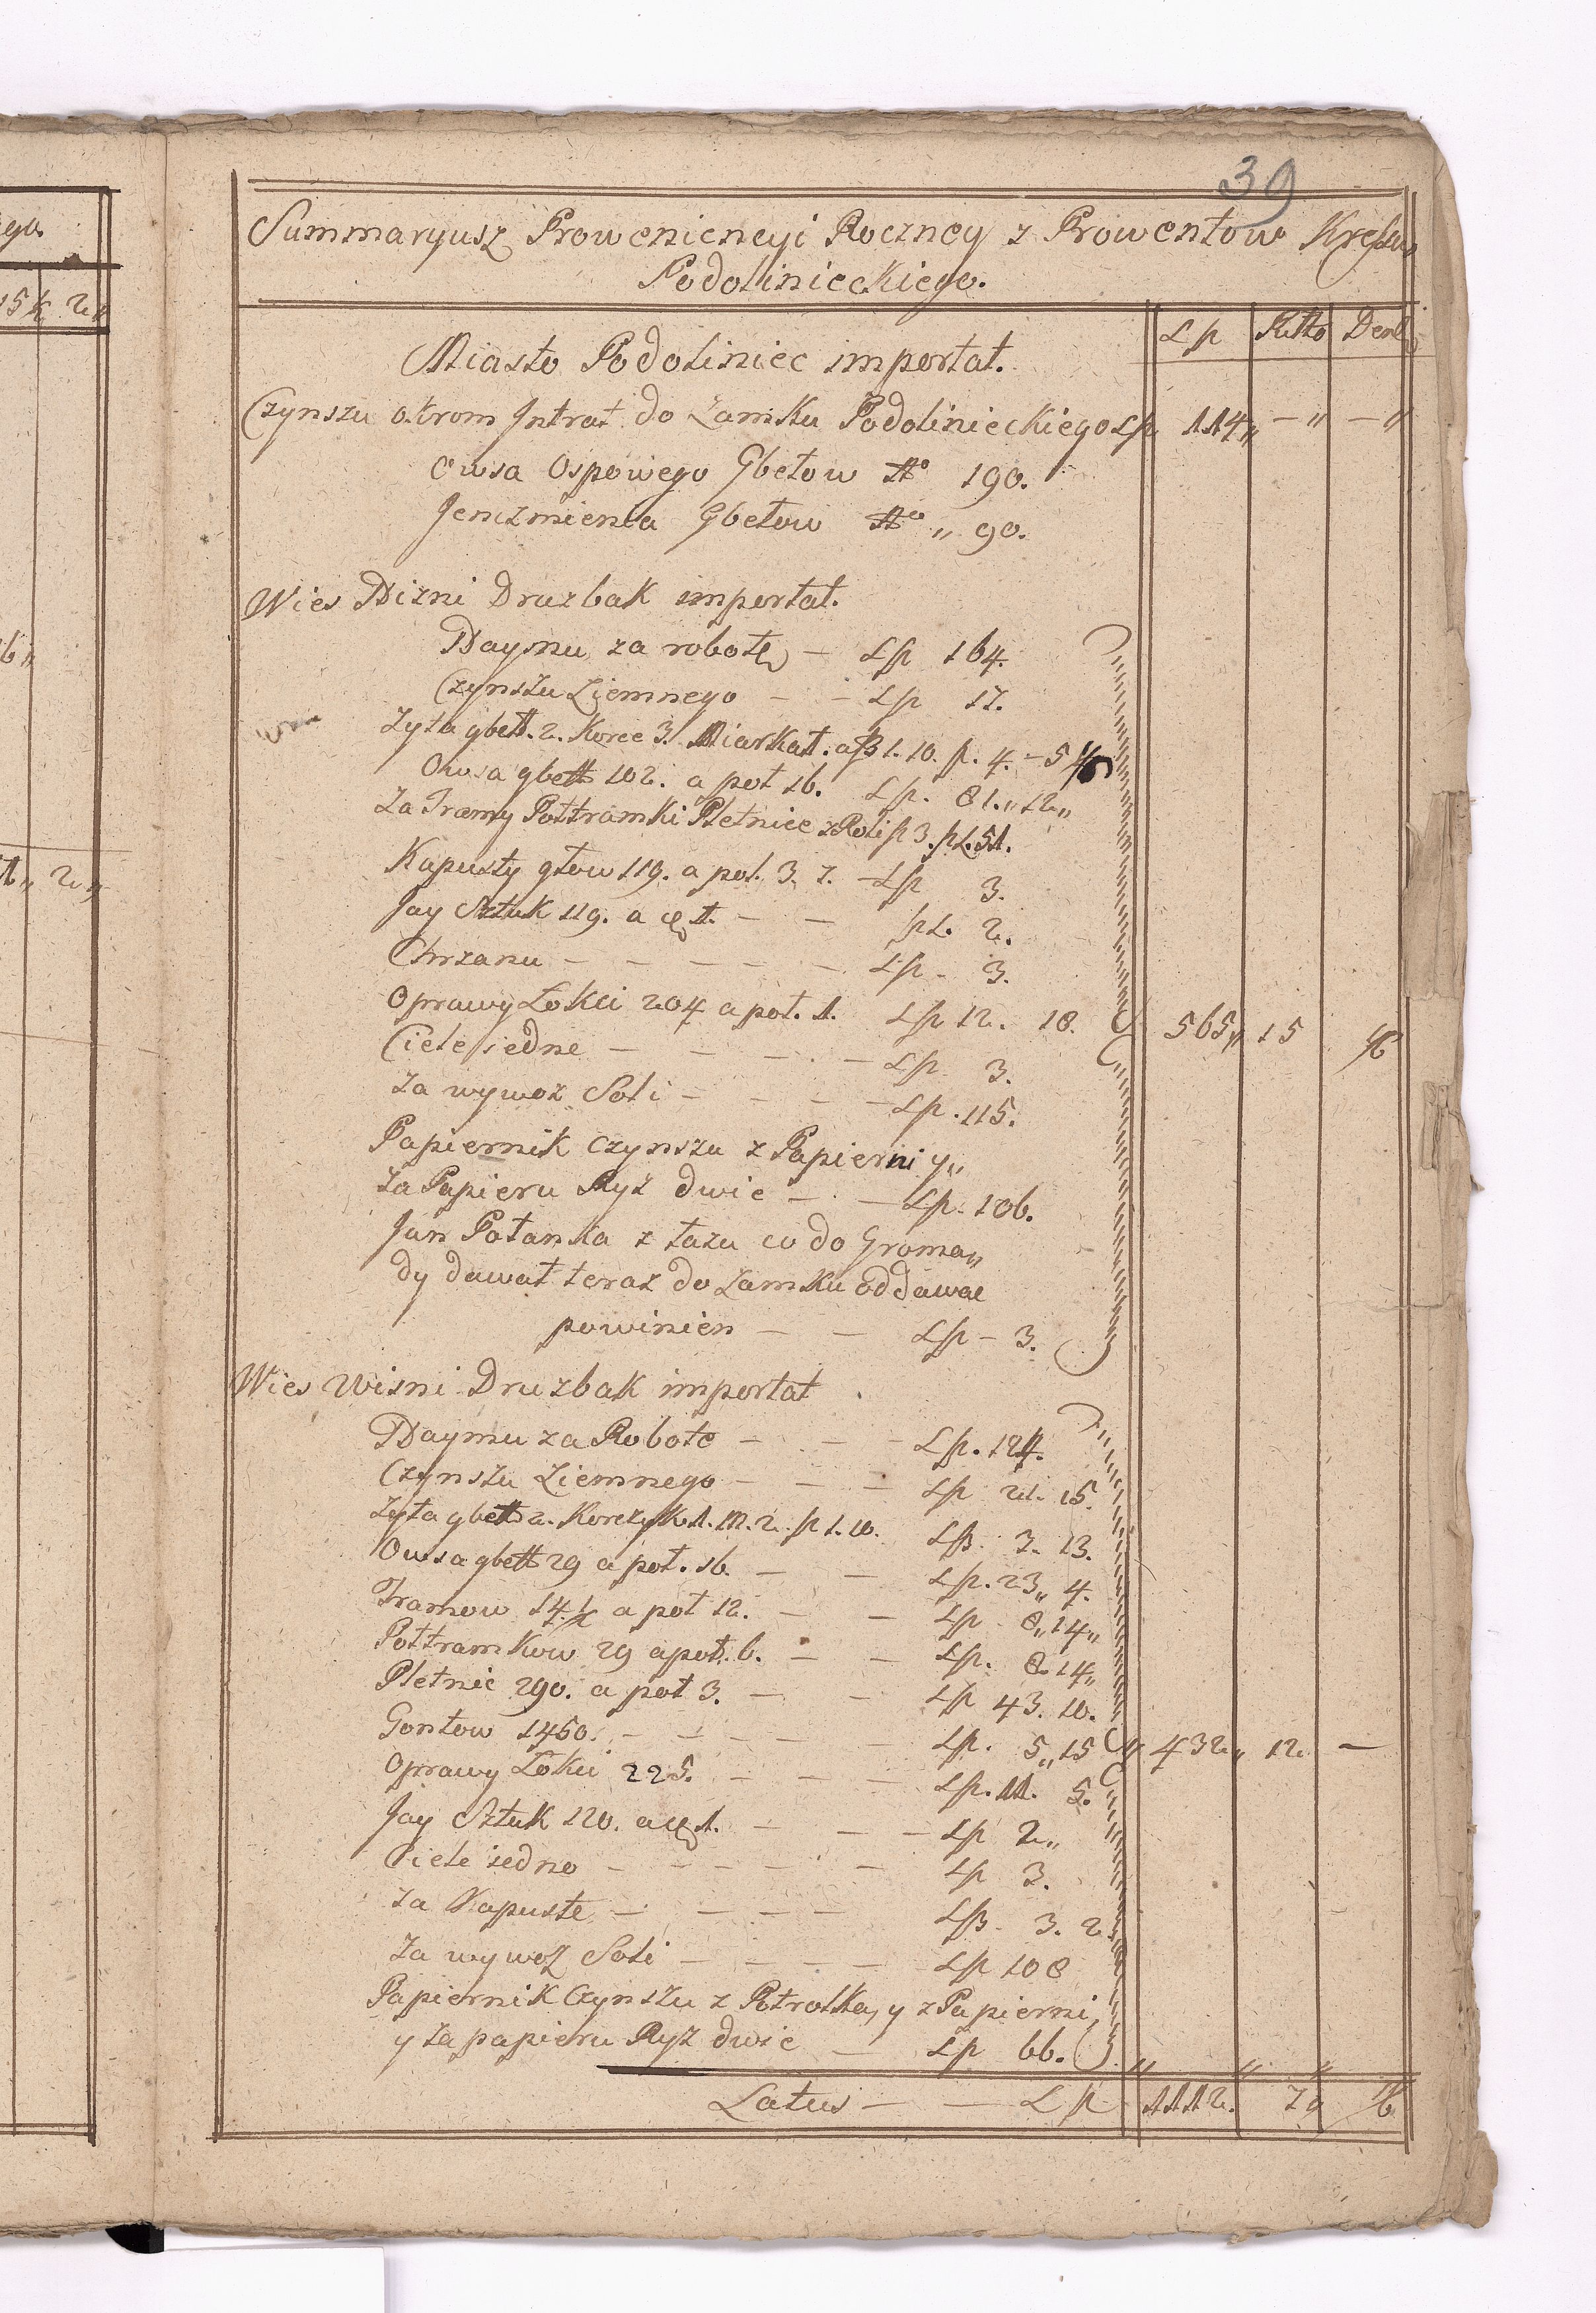 39
Summaryusz Proweniencyi Roczney z Prowentow Kręsu
Podolinieckiego.
Lp
Miasto Podoliniec importat.
Czynszu Intrat do Zamku Podolinieckiego Lp 114 „ — „ — „
Owsa Ospowego Gbełow No 190.
Jenczmienia Gbełow No „ 90.
Wies Nizni Druzbak importat.
Naymu za robotę — Lp 164.
Czynszu Ziemnego — — Lp 17.
Zyta gbełł. 2. Korce 3. Miarkat.
Owsa gbełł 102. a poł 16. Lp. 81. „ 12 „
Za Tramy Połtramki Pletnice z Roli
Kapusty głow 119. a poł. 3. — Lp 3.
Jay Sztuk 119. — — 2.
Chrzanu — — — — — Lp. 3.
Oprawy Łokci 204 a poł. 1. Lp 12. 18. 565 „ 15
Ciele jedne — — — — Lp 3.
Za wywoz Soli — — — — Lp. 115.
Papiernik Czynszu z Papierni y „
Za Papieru Ryz dwie — — Lp. 106.
Jan Potanka z łazu co do Groma „
dy dawał teraz do Zamku oddawac
powinien — — Lp — 3.
Wies Wisni Druzbak importat
Naymu za Robote — — — Lp. 124.
Czynszu Ziemnego — — — Lp 21. 15.
Zyta gbełł 2. Korczyk 1. M. 2. p 1. 10. Lp. 7. 13.
Owsa gbełł 29 a poł. 16. — — Lp. 23 „ 4.
Tramow 14. ½ a poł 12. — — Lp 8 „ 14 „
Połtramkow 29 a poł. 6. — — Lp. 8. 14 „
Pletnic 290. a poł 3. — — Lp 43. 10.
Gontow 1450. — — — — — Lp. 5 „ 15 „ 432 „ 12 —
Oprawy Łokci 225. — — — Lp. 11. 5.
Jay Sztuk 120. — — — Lp 2 „
Ciele jedno — — — — — Lp 3.
Za Kapuste — — — — Lp. 3. 2.
Za wywoz Soli — — — — Lp 108
Papiernik Czynszu z y z Papierni,
y za papieru Ryz dwie — Lp 66. „ „ „
Latus — — Lp 1112.